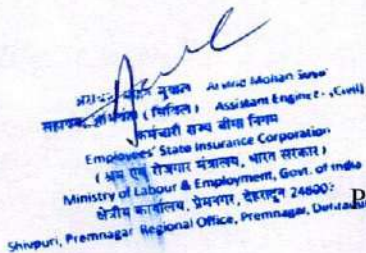 मोहन Arvind Mohan
सहायक अभियंता (सिविल) Assistant Engineer (Civil)
कर्मचारी राज्य बीमा निगम
Employees' State Insurance Corporation
( श्रम एवं रोजगार मंत्रालय, भारत सरकार )
Ministry of Labour & Employment, Govt. of India
क्षेत्रीय कार्यालय, प्रेमनगर, देहरादून 248007
P
Shivpuri, Premnagar Regional Office, Premnagar, Dehradun